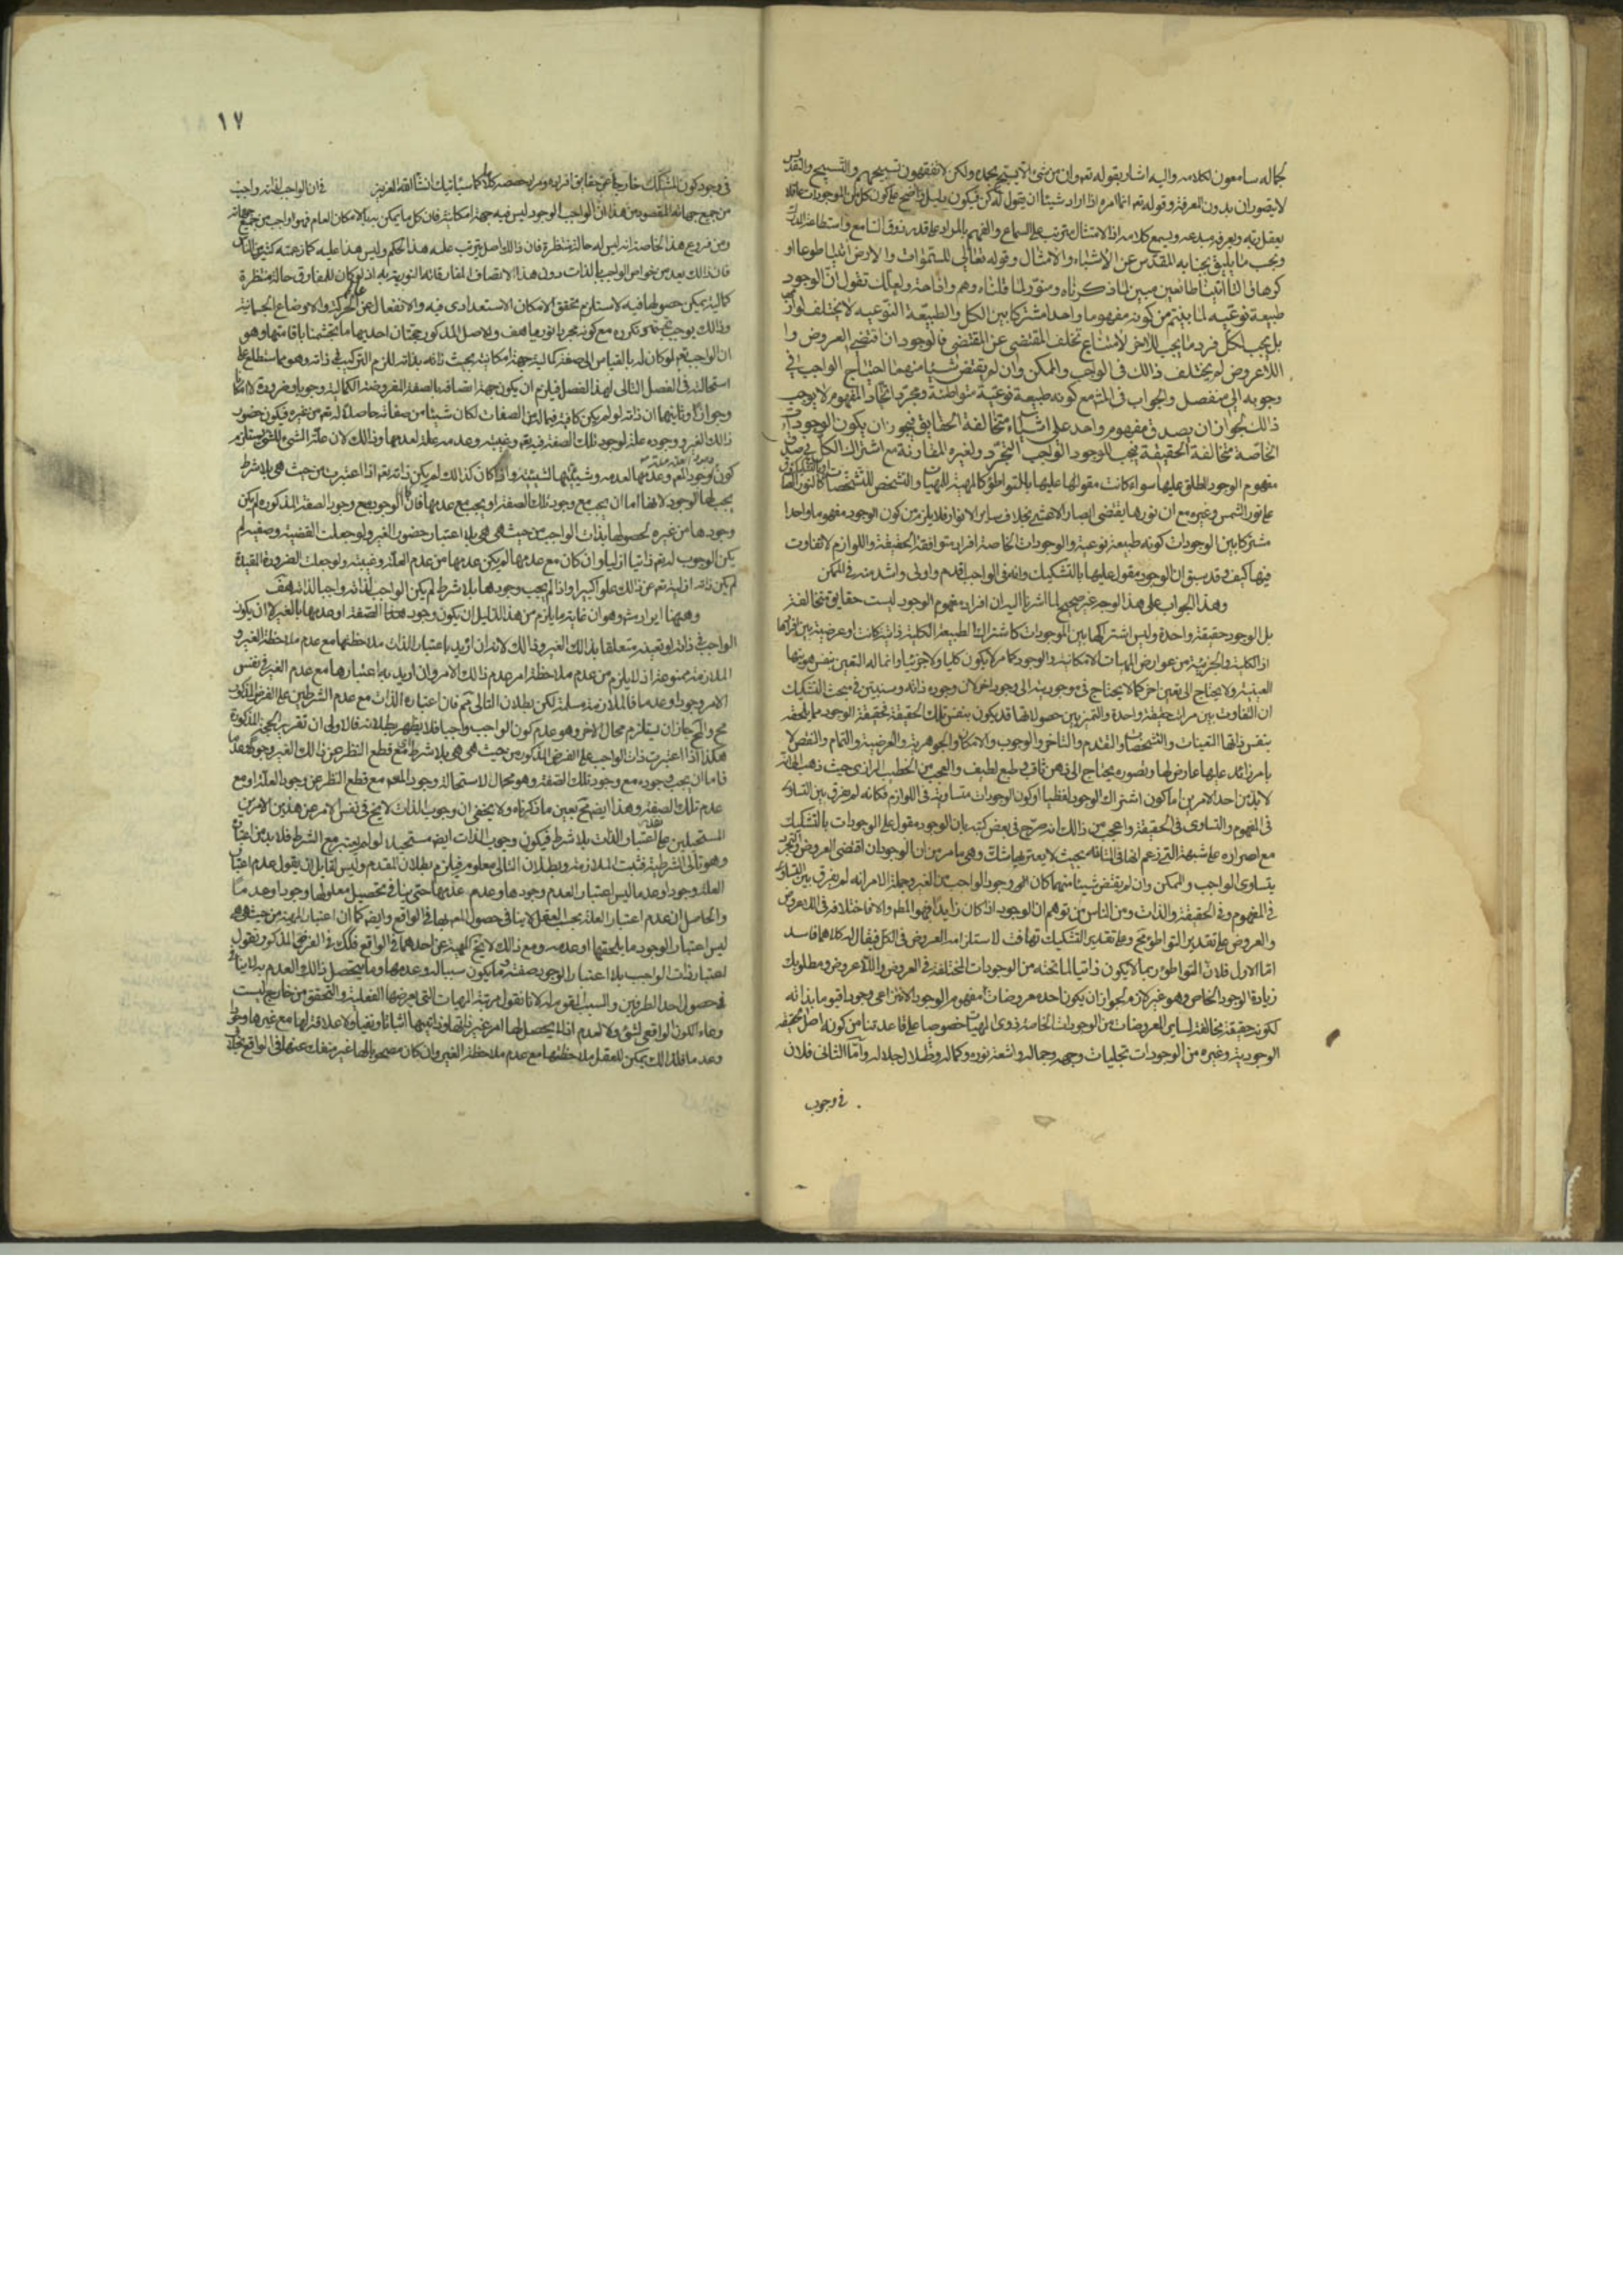 لجماله سامعون لكلامه واليه اشار بقوله تعم وان من شئ الا يسبح بحمده ولكن لا تفقهون تسبيحهم والتسبيح والتقديس
لا يتصوران بدون المعرفة وقوله تعم انما امره اذا اراد شيئا ان يقول له كن فيكون دليل واضح على كون كل من الموجودات عاقلا
يعقل ربه ويعرف مبدعه ويسمع كلامه اذ الامتثال مترتب على السماع والفهم بالمراد على قدر ذوق السامع واستطاعة المدرك
وبحسب ما يليق بجنابه المقدس عن الاشباه والامثال وقوله تعالى للسموات والارض ائتيا طوعا او
كرها قالتا اتينا طائعين مبين لما ذكرناه ومنور لما قلناه وهم وازاحة ولعلك تقول ان الوجود
طبيعة نوعية لما بينتم من كونه مفهوما واحدا مشتركا بين الكل والطبيعة النوعية لا يختلف لوازمها
بل يجب لكل فرد ما يجب للاخر لامتناع تخلف المقتضى عن المقتضي فالوجود ان اقتضى العروض او
اللاعروض لم يختلف ذالك في الواجب والممكن وان لم يقتض شيئا منهما احتاج الواجب في
وجوبه الى منفصل والجواب في المنع كونه طبيعة نوعية متواطئة ومجرد اتحاد المفهوم لا يوجب
ذالك لجواز ان يصدق مفهوم واحد على اشياء متخالفة الحقايق فيجوز ان يكون الوجودات
الخاصة متخالفة الحقيقة يجب للوجود الواجب التجرد ولغيره المقارنة مع اشتراك الكل في صدق
مفهوم الوجود المطلق عليها سواء كانت مقوليتها عليها بالتواطؤ كالمهية للمهيات والتشخص للتشخصات او بالتشكيك كالنور الصادق
على نور الشمس وغيره مع ان نورها يقتضي ابصار الاعشى بخلاف ساير الانوار فلا يلزم من كون الوجود مفهوما واحدا
مشتركا بين الوجودات كونه طبيعة نوعية والوجودات الخاصة افراد متوافقة الحقيقة واللوازم لا تفاوت
فيها كيف وقد سبق ان الوجود مقول عليها بالتشكيك وانه في الواجب اقدم واولى واشد منه في الممكن
وهذا الجواب على هذا الوجه غير صحيح لما اشرنا اليه ان افراد مفهوم الوجود ليست حقايق متخالفة
بل الوجود حقيقة واحدة وليس اشتراكها بين الموجودات كاشتراك الطبيعة الكلية ذاتية كانت او عرضية بين افرادها
اذ الكلية والجزئية من عوارض المهيات الامكانية والوجود كما مر لا يكون كليا ولا جزئيا وانما له التعين بنفس هويتها
العينية ولا يحتاج الى تعين اخر كما لا يحتاج في موجوديته الى وجود اخر لان وجوده ذاته وسنبين في مبحث التشكيك
ان التفاوت بين مراتب حقيقة واحدة والتميز بين حصولاتها قد يكون بنفس تلك الحقيقة فحقيقة الوجود مما يلحقه
بنفس ذاتها التعينات والتشخصات والتقدم والتاخر والوجوب والامكان والجوهرية والعرضية والتمام والنقص لا
بامر زائد عليها عارض لها وتصوره يحتاج الى ذهن ثاقب وطبع لطيف والعجب من الخطيب الرازي حيث ذهب الى انه
لا بد من احد الامرين اما كون اشتراك الوجود لفظيا او كون الوجودات متساوية في اللوازم فكانه لم يفرق بين التساوي
في المفهوم والتساوي في الحقيقة واعجب من ذالك انه صرح في بعض كتبه بان الوجود مقول على الوجودات بالتشكيك
مع اصراره على شبهته التي زعم انها في المتانة بحيث لا يعتريها شك وهي ما مر من ان الوجود ان اقتضى العروض او التجرد
يتساوى الواجب والممكن وان لم يقتض شيئا منهما كان وجود الواجب من الغير وجملة الامر انه لم يفرق بين التساوي
في المفهوم وفي الحقيقة والذات ومن الناس من توهم ان الوجود اذا كان زايدا فهو المطلوب والا فاختلافه في اللاعروض
والعروض على تقدير التواطؤ مح وعلى تقدير التشكيك تهافت لاستلزامه العروض في الكل فيقال له كلاهما فاسد
اما الاول فلان المتواطؤ ربما لا يكون ذاتيا لما تحته من الوجودات المختلفة في العروض واللاعروض ومطلوبك
زيادة الوجود الخاص وهو غير لازم لجواز ان يكون احد معروضات مفهوم الوجود الانتزاعي وجودا قيوما بذاته
لكونه حقيقة مخالفة لساير المعروضات من الوجودات الخاصة لذوي المهيات خصوصا على قاعدتنا من كونه اصل حقيقة
الوجودية وغيره من الوجودات تجليات وجهه وجماله واشعة نوره وكماله وظلال جلاله واما الثاني فلان
في وجوب
١٧
في وجود كون المشكك خارجا عن حقايق افراده ومراتب حصصه كلاما كما سياتيك انشاء الله العزيز في ان الواجب لذاته واجب
من جميع جهاته المقصود من هذا ان الواجب الوجود ليس فيه جهة امكانية فان كل ما يمكن له بالامكان العام فهو واجب من جميع جهاته
ومن فروع هذه الخاصة انه ليس له حالة منتظرة فان ذالك اصل يترتب عليه هذا الحكم وليس هذا عليه كما زعمته كثير من الناس
فان ذالك يعد من خواص الواجب بالذات دون هذا لاتصاف المفارقات النورية به اذ لو كان للمفارق حالة منتظرة
كمالية يمكن حصولها فيه لاستلزم تحقق الامكان الاستعدادي فيه والانفعال عن عالم الحركة والاوضاع الجسمانية
وذالك يوجب تجسمه وتكدره مع كونه مجردا نوريا هف وللاصل المذكور حجتان احديهما ما تجشمنا باقامتها وهو
ان الواجب تعم لو كان له بالقياس الى صفة كمالية جهة امكانية بحيث ذاته بذاته للزم التركيب في ذاته وهو مما ستطلع على
استحالته في الفصل التالي لهذا الفصل فيلزم ان يكون جهة اتصافه بالصفة المفروضة الكمالية وجوبا وضرورة لا امكانا
وجوازا وثانيهما ان ذاته لو لم يكن كافية فيما له من الصفات لكان شيئا من صفاته حاصلا له تعم من غيره فيكون حضور
ذالك الغير ووجوده علة لوجود تلك الصفة فيه تعم وغيبته وعدمه علة لعدمها وذالك لان علة الشيء للشيء يستلزم
كون وجود العلة علة لوجود المعلول وعدمها لعدمه وشيئيتها لشيئيته واذا كان كذالك لم يكن ذاته تعم اذا اعتبرت من حيث هي بلا شرط
يجب لها الوجود لانها اما ان يجب مع وجود تلك الصفة او يجب مع عدمها فان كان الوجوب مع وجود الصفة المذكورة لم يكن
وجودها من غيره لحصولها بذات الواجب من حيث هي هي بلا اعتبار حضور الغير ولو جعلت القضية وصفية لم
يكن الوجوب له تعم ذاتيا ازليا وان كان مع عدمها لم يكن عدمها من عدم العلة وغيبته ولو جعلت الضرورة مقيدة
لم يكن ذاته ازلية تعم عن ذالك علوا كبيرا واذا لم يجب وجودها بلا شرط لم يكن الواجب لذاته واجبا لذاته هف
وههنا ايراد مشهور وهو ان غاية ما يلزم من هذا الدليل ان يكون وجود هذا الصفة او عدمها بالغير لا ان يكون
الواجب في ذاته او تعينه متعلقا بذالك الغير وذالك لانه ان اريد باعتبار الذات ملاحظتها مع عدم ملاحظة الغير و
الملازمة ممنوعة اذ لا يلزم من عدم ملاحظة امر عدم ذالك الامر وان اريد به اعتبارها مع عدم الغير في نفس
الامر وجودا وعدما فالملازمة مسلمة لكن بطلان التالي مم فان اعتبار الذات مع عدم الشرطين على الفرض المذكور
مح والمح جاز ان يستلزم محالا اخر وهو عدم كون الواجب واجبا فلا يظهر بطلانه فالاولى ان تقرير الحجة المذكورة
هكذا اذا اعتبرت ذات الواجب على الفرض المذكور من حيث هي هي بلا شرط مع قطع النظر عن ذالك الغير وجودا وعدما
فاما ان يجب وجوده مع وجود تلك الصفة وهو محال لاستحالة وجود المعلول مع قطع النظر عن وجود العلة او مع
عدم تلك الصفة وهذا ايضا مح بعين ما ذكرناه ولا يخفى ان وجوب الذات لا يخ في نفس الامر عن هذين الامرين
المستحيلين على تقدير اعتبار الذات بلا شرط فيكون وجوب الذات ايضا مستحيلا لو لم يعتبر مع الشرط فلا بد من اعتباره
وهو تالي الشرطية فثبت الملازمة وبطلان التالي معلوم فيلزم بطلان المقدم وليس لقايل ان يقول عدم اعتبار
العلة وجودا وعدما ليس اعتبارا لعدم وجودها وعدم عدمها حتى ينافي تحصيل معلولها وجودا وعدما
والحاصل ان عدم اعتبار العلة بحسب العقل لا ينافي حصول المعلول بها في الواقع وايضا كما ان اعتبار المهية من حيث هي هي
ليس اعتبار الوجود ما يلحقها او عدمه ومع ذالك لا يخ المهية عن احدهما في الواقع فكذلك في الفرض المذكور ونقول
اعتبار ذات الواجب بلا اعتبار وجود صفة وما يكون سببا له وعدمها وما يتحصل ذالك العدم به لا ينافي
حصول احد الطرفين والسبب المقوم له لانا نقول مرتبة المهيات التي يعرضها الفعلية والتحقق من خارج ليست
وعاء للكون الواقعي لشئ ولا لعدم اذ لم يتحصل لها امر غير ذاتها وذاتيتها اثباتا ونفيا ولا علاقة لها مع غيرها وجودا
وعدما فلذالك يمكن للعقل ملاحظتها مع عدم ملاحظة الغير وان كان مصحوبا لها غير منفك عنها في الواقع بخلاف